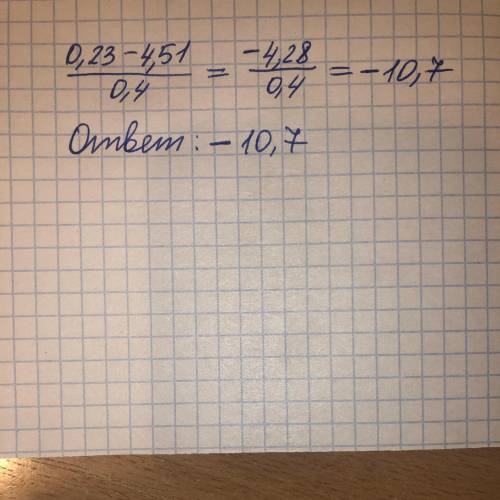 0,23-4,51/0,4 = -4,28/0,4 = -10,7
Ответ: - 10,7